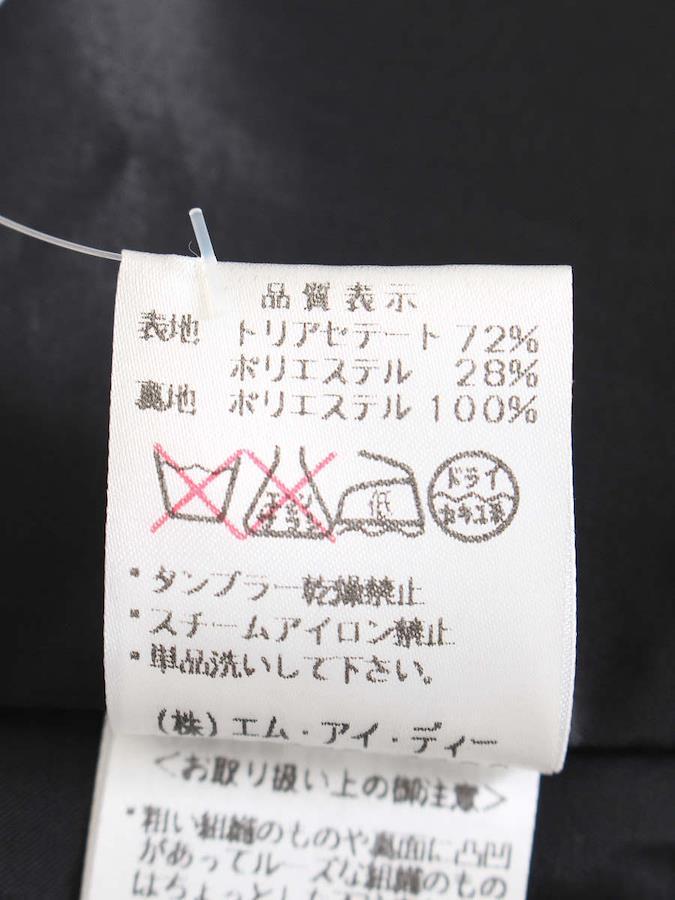 品質表示
表地 トリアセテート 72%
ポリエステル 28%
裏地 ポリエステル 100%
エンソ サラシ 低 ドライ セキユ系
・タンブラー乾燥禁止
・スチームアイロン禁止
・単品洗いして下さい。
(株)エム・アイ・ディー
<お取り扱い上の御注意>
・粗い組織のものや裏面に凸凹
があってルーズな組織のもの
はちょっとした